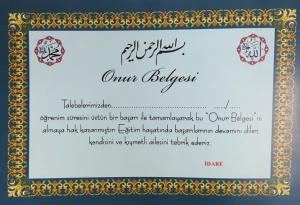 بسم الله الرحمن الرحيم
محمد
الله
Onur Belgesi
Talebelerimizden........................................ ..../....
öğrenim süresini üstün bir başarı ile tamamlayarak bu "Onur Belgesi"ni
almaya hak kazanmıştır. Eğitim hayatında başarılarının devamını diler,
kendisini ve kıymetli ailesini tebrik ederiz.
İDARE